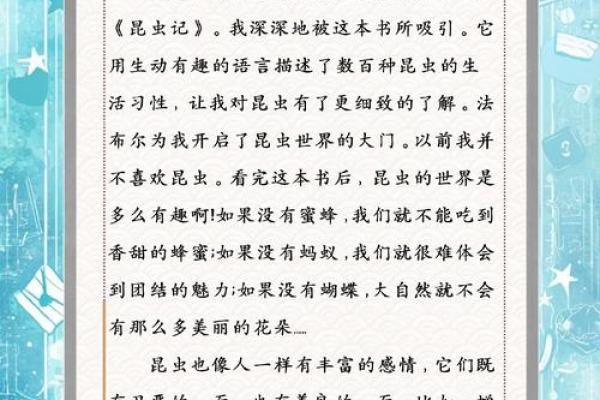 《昆虫记》。我深深地被这本书所吸引。它
用生动有趣的语言描述了数百种昆虫的生
活习性，让我对昆虫有了更细致的了解。法
布尔为我开启了昆虫世界的大门。以前我并
不喜欢昆虫。看完这本书后，昆虫的世界是
多么有趣啊!如果没有蜜蜂,我们就不能吃到
香甜的蜂蜜;如果没有蚂蚁,我们就很难体会
到团结的魅力;如果没有蝴蝶,大自然就不会
有那么多美丽的花朵.....
昆虫也像人一样有丰富的感情，它们既